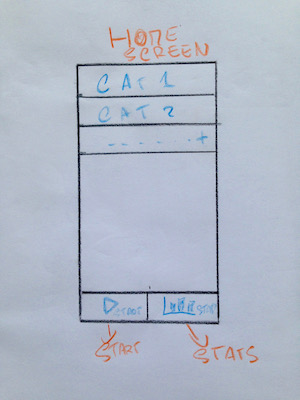 HOME
SCREEN
CAT 1
CAT 2
- - - - - +
START
START
STATS